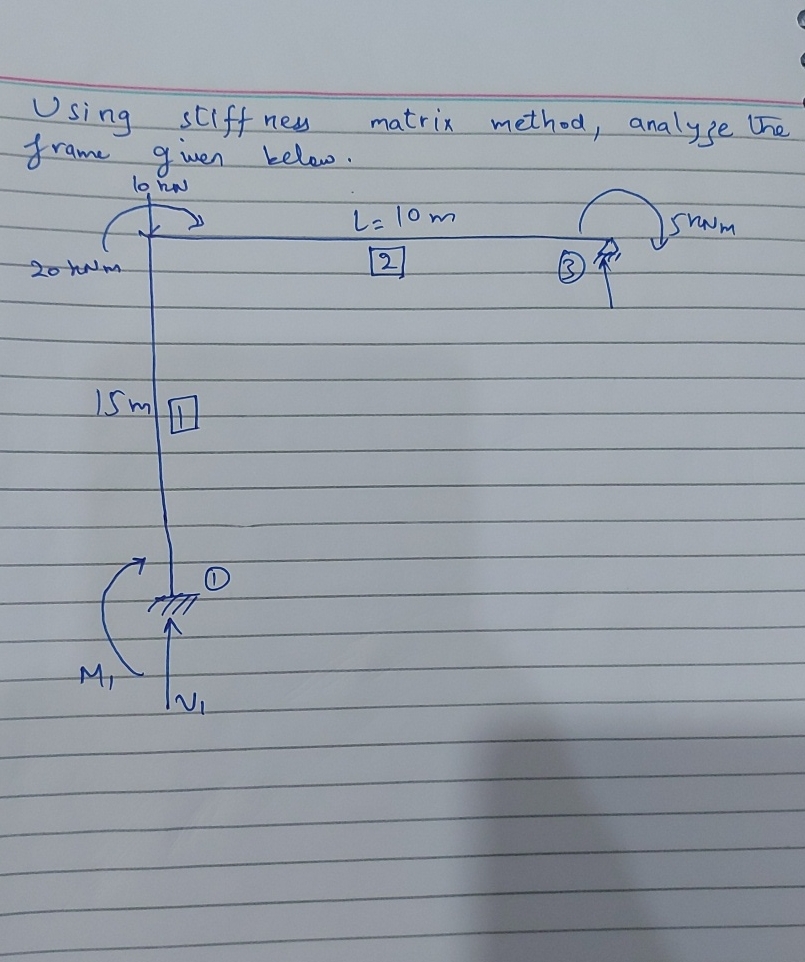 Using stiffness matrix method, analyze the
frame given below.
10 kN
L = 10 m
5 kNm
20 kNm
2
3
15 m
1
1
M1
V1